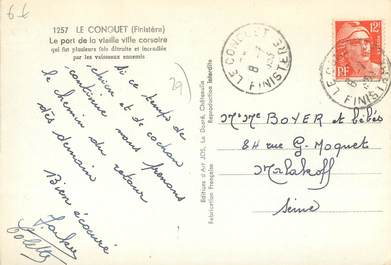 6-6
1257 LE CONQUET (Finistère)
Le port de la vieille ville corsaire
qui fut plusieurs fois détruite et incendiée
par les vaisseaux ennemis
29
Si ce temps de
chien et de cochon
continue nous prenons
le chemin du retour
dès demain
Bien écœuré
Colette
Editions d'Art JOS, Le Doaré, Châteaulin
Fabrication Française
Reproduction Interdite
LE CONQUET
FINISTERE
12F
RF
FINIS
M. Me BOYER et bébés
84 rue G. Moquet
Malakoff
Seine